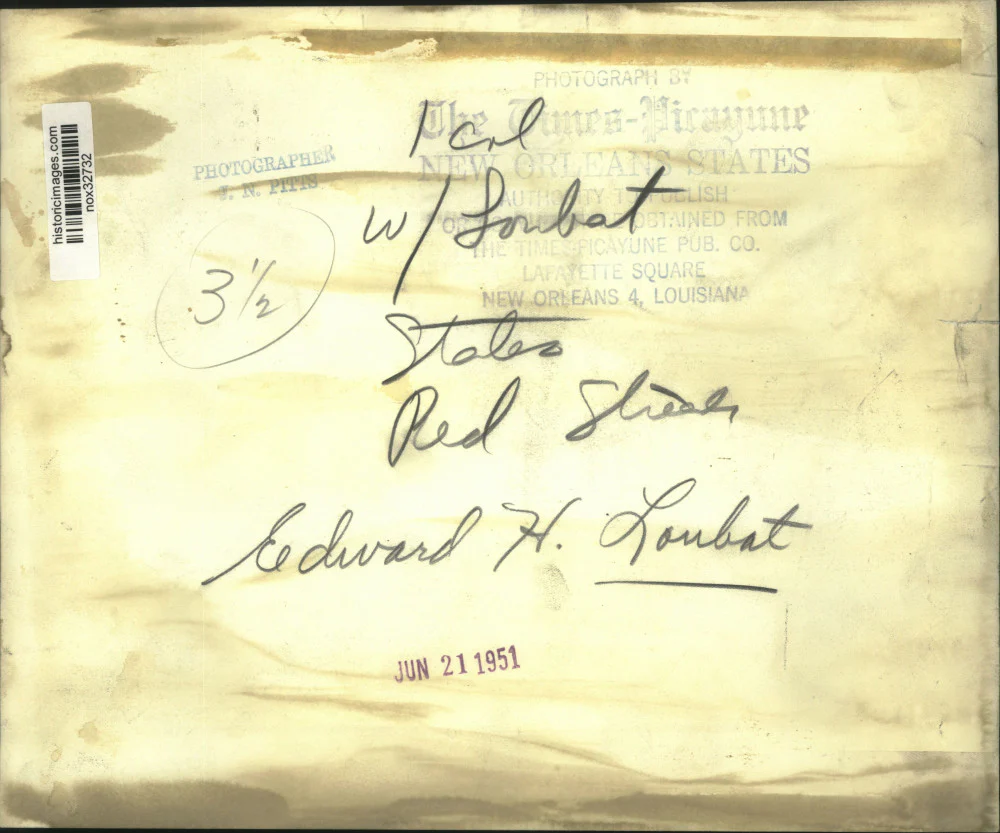 historicimages.com
nox32732
PHOTOGRAPHER
J. N. PITTS
PHOTOGRAPH BY
The Times-Picayune
NEW ORLEANS STATES
AUTHORITY TO PUBLISH
OBTAINED FROM
THE TIMES-PICAYUNE PUB. CO.
LAFAYETTE SQUARE
NEW ORLEANS 4, LOUISIANA
1 col
w/ Loubat
3 1/2
States
Red Streak
Edward H. Loubat
JUN 21 1951